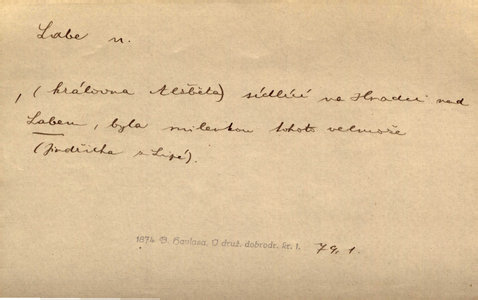 Labe n.
, (královna Alžběta) sídlící ve Hradci nad
Labem, byla milenkou tohoto velmože
(Jindřicha z Lipé).
1874 B. Havlasa, V druž. dobrodr. kr. 1. 79, 1.